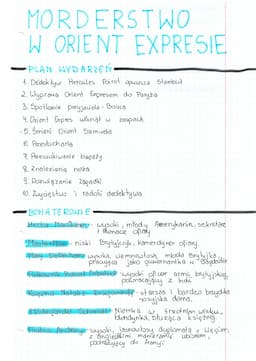 MORDERSTWO
W ORIENT EXPRESIE
PLAN WYDARZEŃ
1. Detektyw Hercules Poirot opuszcza Stambuł
2. Wyprawa Orient Expresem do Paryża
3. Spotkanie przyjaciela - Bouca
4. Orient Expres utknął w zaspach
5. Śmierć
6. Przesłuchania
7. Przeszukiwanie bagaży
8. Znalezienie noża
9. Rozwiązanie zagadki
10. Zwycięstwo i radość detektywa
BOHATEROWIE
Hector MacQueen - wysoki, młody Amerykanin, sekretarz
i tłumacz ofiary
Masterman - niski Brytyjczyk, kamerdyner ofiary
Mary Debenham - wysoka, niemłoda, młoda Brytyjka,
pracująca jako guwernantka w Bagdadzie
Pułkownik - wysoki oficer armii brytyjskiej,
powracający z Indii
Księżna Natalia - starsza i bardzo brzydka
rosyjska dama
Hildegarda Schmidt - Niemka w średnim wieku,
blondynka, służąca księżnej
Hrabia Andrenyi - wysoki, dyplomata z Węgier,
z angielskimi manierami i ubiorem,
podróżujący do Francji